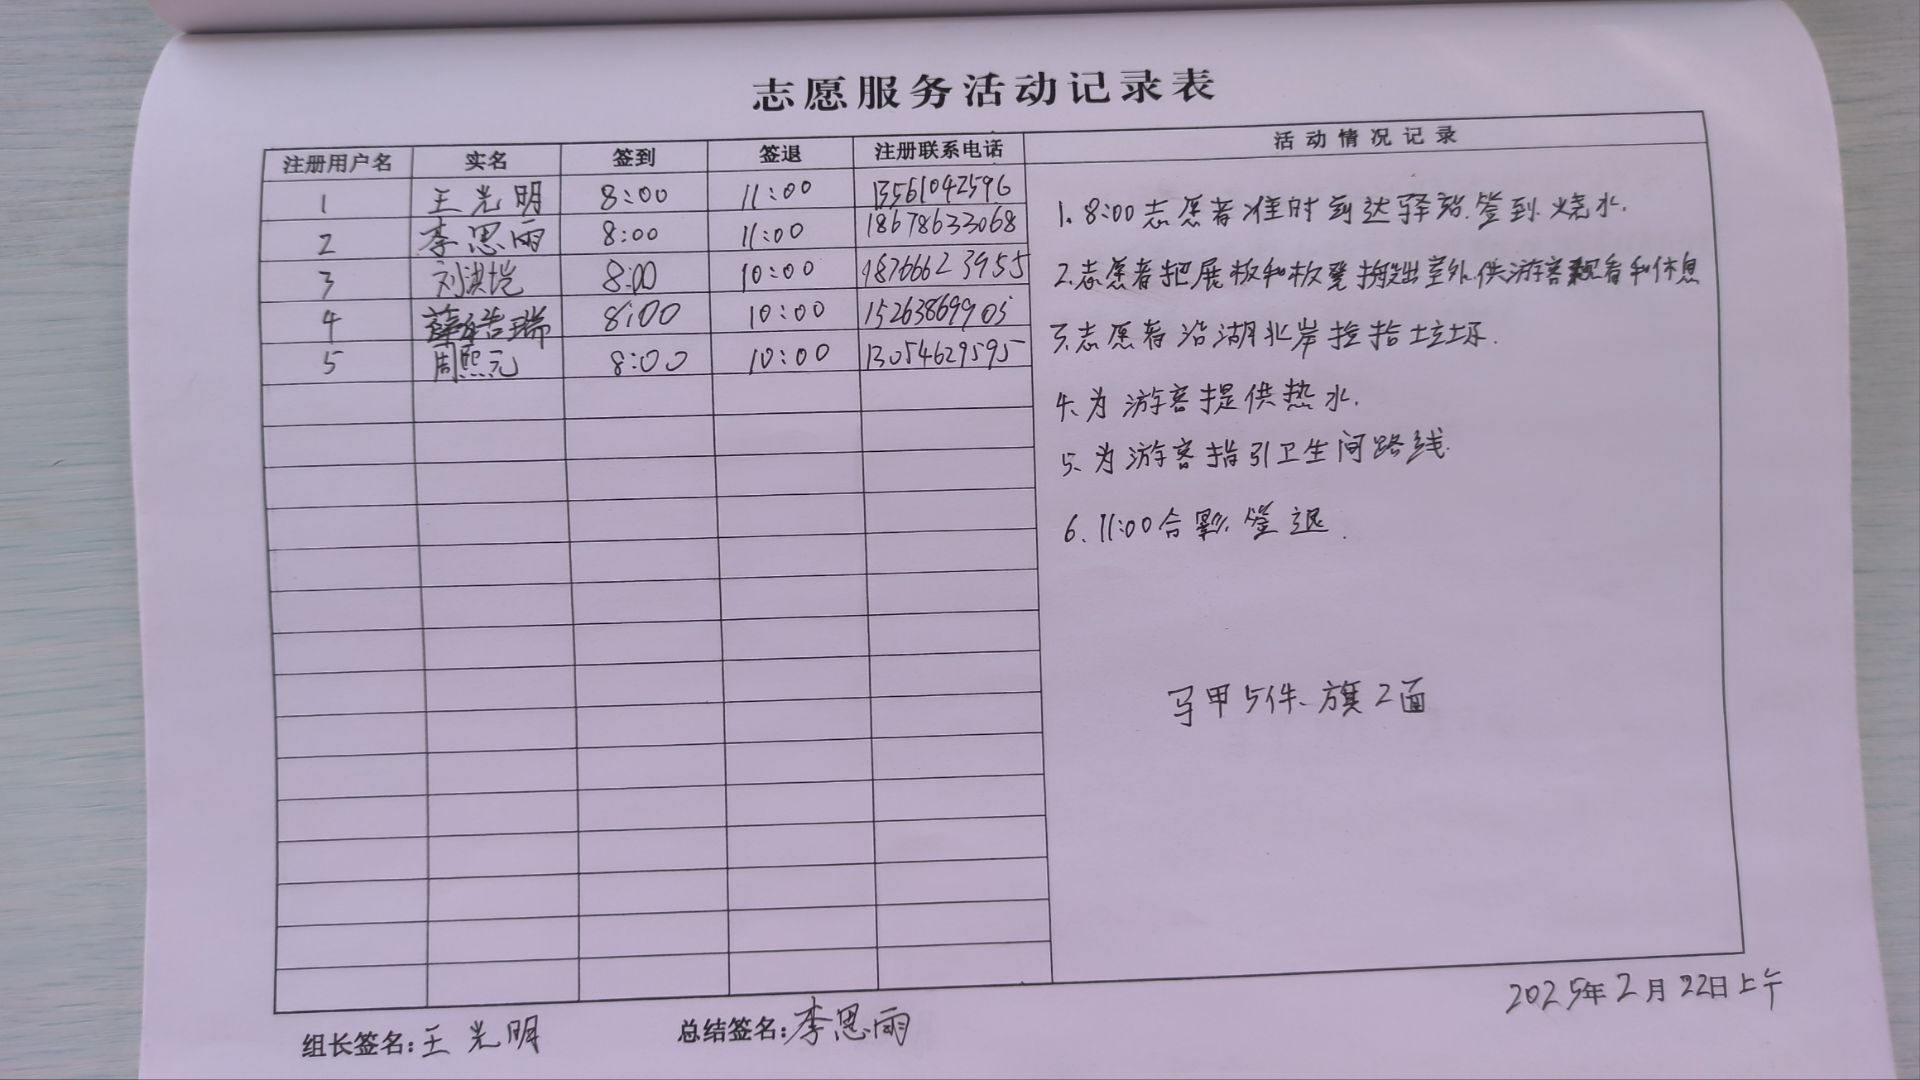 志愿服务活动记录表
注册用户名 实名 签到 签退 注册联系电话 活动情况记录
1 王光明 8:00 11:00 13561042596
2 李思雨 8:00 11:00 18678633068
3 刘淇恺 8:00 10:00 18766623955
4 薛皓瑞 8:00 10:00 15263869905
5 周熙元 8:00 10:00 13054629595
1. 8:00志愿者准时到达驿站.签到.烧水.
2.志愿者把展板和板凳搬出室外.供游客观看和休息
3.志愿者沿湖北岸捡拾垃圾.
4.为游客提供热水.
5.为游客指引卫生间路线.
6.11:00合影.签退.
马甲5件、旗2面
2025年2月22日上午
组长签名:王光明 总结签名:李思雨